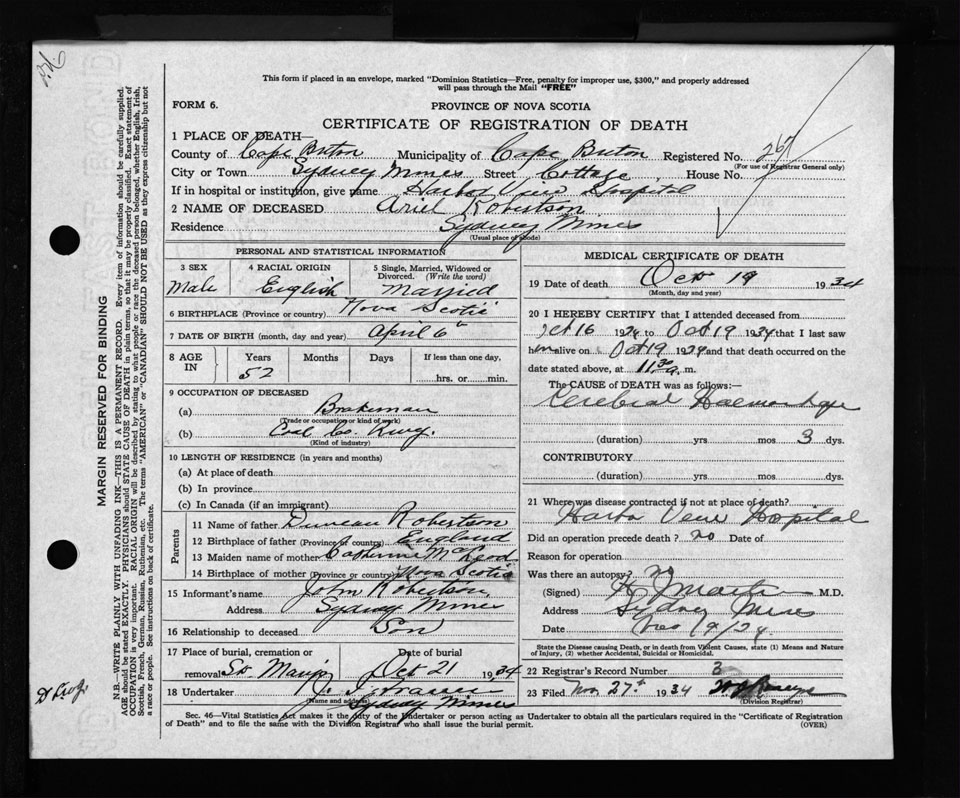 This form if placed in an envelope, marked "Dominion Statistics—Free, penalty for improper use, $300," and properly addressed
will pass through the Mail "FREE"
FORM 6.
PROVINCE OF NOVA SCOTIA
CERTIFICATE OF REGISTRATION OF DEATH
1 PLACE OF DEATH—
County of Cape Breton Municipality of Cape Breton Registered No. 267
(For use of Registrar General only)
City or Town Sydney Mines Street Cottage, House No.
If in hospital or institution, give name Harbor View Hospital
2 NAME OF DECEASED Ariel Robertson
Residence Sydney Mines
(Usual place of abode)
PERSONAL AND STATISTICAL INFORMATION
3 SEX
Male
4 RACIAL ORIGIN
English
5 Single, Married, Widowed or
Divorced. (Write the word)
Married
6 BIRTHPLACE (Province or country) Nova Scotia
7 DATE OF BIRTH (month, day and year) April 6th
8 AGE
IN
Years
52
Months
Days
If less than one day,
hrs. or min.
9 OCCUPATION OF DECEASED
(a) Brakeman
(Trade or occupation or kind of work)
(b) Coal Co.
(Kind of industry)
10 LENGTH OF RESIDENCE (in years and months)
(a) At place of death
(b) In province
(c) In Canada (if an immigrant)
Parents
11 Name of father Duncan Robertson
12 Birthplace of father (Province or country) England
13 Maiden name of mother Catherine McLeod
14 Birthplace of mother (Province or country) Nova Scotia
15 Informant's name John Robertson
Address Sydney Mines
16 Relationship to deceased Son
17 Place of burial, cremation or
removal
Date of burial
Oct 21 1934
18 Undertaker
(Name and address)
Sydney Mines
MEDICAL CERTIFICATE OF DEATH
19 Date of death Oct 19 1934
(Month, day and year)
20 I HEREBY CERTIFY that I attended deceased from
Oct 16 1934 to Oct 19 1934 that I last saw
him alive on Oct 19 1934 and that death occurred on
date stated above, at 11.30 a. m.
The CAUSE of DEATH was as follows:—
Cerebral Haemorrhage
(duration) yrs mos 3 dys.
CONTRIBUTORY
(duration) yrs mos dys.
21 Where was disease contracted if not at place of death?
Harbor View Hospital
Did an operation precede death? no Date of
Reason for operation
Was there an autopsy? no
(Signed) M.D.
Address Sydney Mines
Date
State the Disease causing Death, or in death from Violent Causes, state (1) Means and Nature
of Injury, (2) whether Accidental, Suicidal or Homicidal.
22 Registrar's Record Number 3
23 Filed Nov 27th 1934
(Division Registrar)
Sec. 46—Vital Statistics Act makes it the duty of the Undertaker or person acting as Undertaker to obtain all the particulars required in the "Certificate of Registration
of Death" and to file the same with the Division Registrar who shall issue the burial permit. (OVER)
MARGIN RESERVED FOR BINDING
N.B.—WRITE PLAINLY WITH UNFADING INK—THIS IS A PERMANENT RECORD. Every item of information should be carefully supplied.
AGE should be stated EXACTLY. PHYSICIANS should STATE CAUSE OF DEATH in plain terms, so that it may be properly classified. Exact statement of
OCCUPATION is very important. RACIAL ORIGIN will be described by stating to what people or race the deceased person belonged, whether English, Irish,
Scottish, French, German, Russian, Ruthenian, etc. The terms "AMERICAN" or "CANADIAN" SHOULD NOT BE USED as they express citizenship but not
a race or people. See instructions on back of certificate.